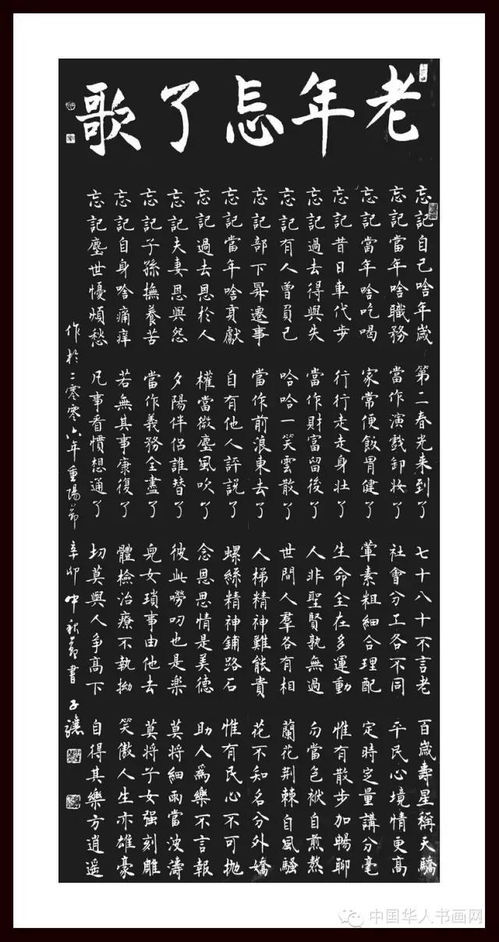 老年忘了歌
忘記自己啥年歲 第二春光来到了 七十八十不言老 百歲壽星稱天驕
忘記當年啥職務 當作演戲卸妝了 社會分工各不同 平民心境情更高
忘記當年啥吃喝 家常便飯胃健了 葷素粗細合理配 定時定量講分毫
忘記昔日車代步 行行走走身壯了 生命全在多運動 惟有散步加暢聊
忘記過去得與失 當作財富留後了 人非聖賢孰無過 勿當包袱自煎熬
忘記有人曾負己 哈哈一笑雲散了 世間人羣各有相 蘭花荆棘自風騷
忘記部下昇遷事 當作前浪東去了 人梯精神難能貴 花不知名分外嬌
忘記當年啥貢獻 自有他人評說了 螺絲精神鋪路石 惟有民心不可拋
忘記過去恩於人 權當微塵風吹了 念恩思情是美德 助人爲樂不言報
忘記夫妻恩與怨 夕陽伴侶誰替了 彼此嘮叨也是樂 莫將細雨當濤
忘記子孫撫養苦 當作義務全盡了 兒女瑣事由他去 莫將子女强刻雕
忘記自身啥痛痒 若無其事康復了 體檢治療不執拗 笑傲人生亦雄豪
忘記塵世憂煩愁 凡事看慣想通了 切莫與人争高下 自得其樂方逍遥
作於二零零六年重陽節 辛卯中秋節書 子讓
中国华人书画网